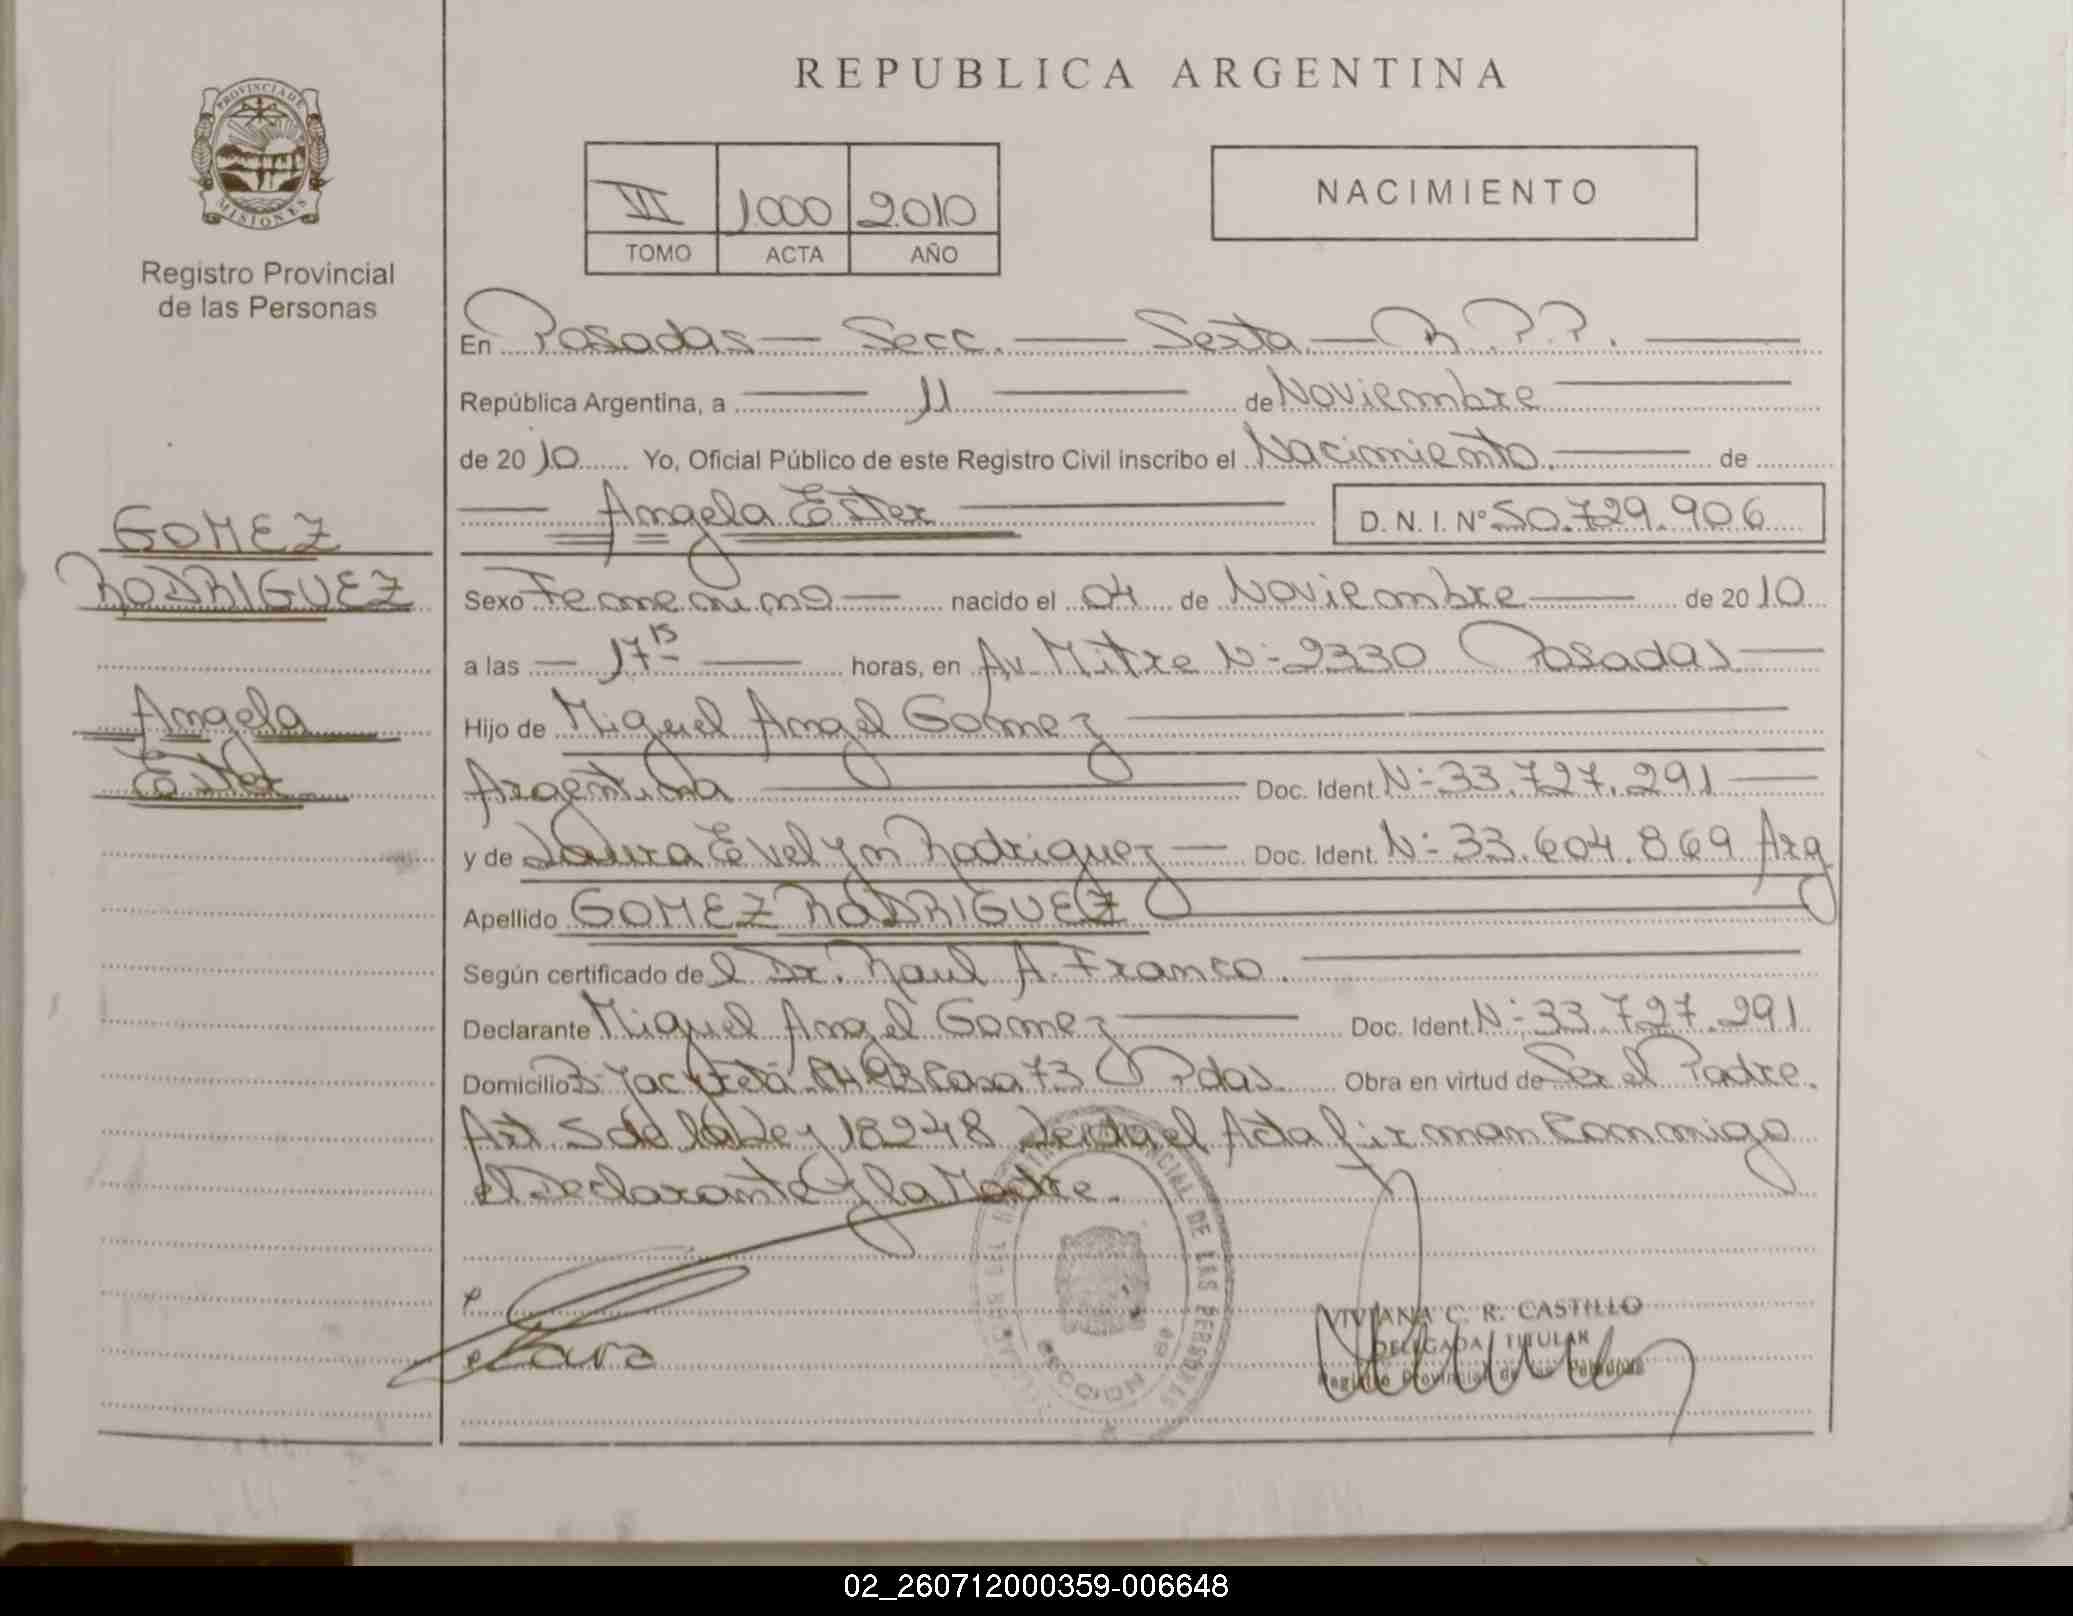 REPUBLICA ARGENTINA
PROVINCIA DE
MISIONES
Registro Provincial
de las Personas
VII 1000 2010
TOMO ACTA AÑO
NACIMIENTO
En Posadas — Secc. — Sexta — R.P.P. —
República Argentina, a — 11 — de Noviembre —
de 2010 Yo, Oficial Público de este Registro Civil inscribo el Nacimiento. — de
— Angela Ester — D. N. I. Nº 50.729.906
GOMEZ
RODRIGUEZ
Angela
Ester
Sexo Femenino — nacido el 04 de Noviembre — de 2010
a las — 17 15 — horas, en Av. Mitre N- 2330 Posadas —
Hijo de Miguel Angel Gomez —
Argentina — Doc. Ident. N- 33.727.291 —
y de Laura Evelyn Rodriguez — Doc. Ident. N- 33.604.869 Arg
Apellido GOMEZ RODRIGUEZ —
Según certificado de l Dr. Raul A. Franco. —
Declarante Miguel Angel Gomez — Doc. Ident. N- 33.727.291
Domicilio B- Yacyreta Casa 73 Pdas. Obra en virtud de Ser el Padre.
Art 5 de la Ley 18248 Leida el Acta firman Conmigo
el Declarante y la Madre.
Laura
PROVINCIAL DE LAS PERSONAS
SECCION 6a
VIVIANA C. R. CASTILLO
DELEGADA TITULAR
Registro Provincial de las Personas
02_260712000359-006648